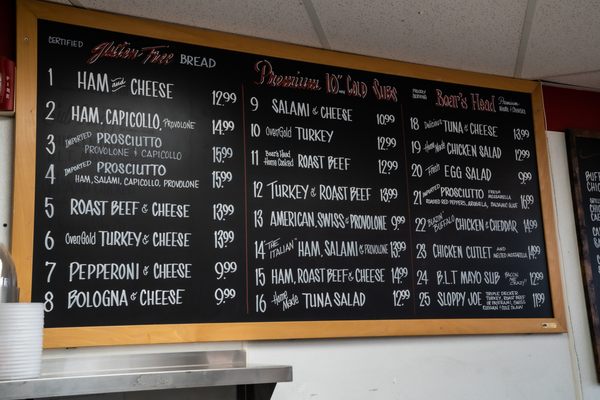 CERTIFIED Gluten-Free BREAD
Premium 10" COLD SUBS
PROUDLY SERVING Boar's Head Premium Meats & Cheeses
1 HAM and CHEESE 12.99
2 HAM, CAPICOLLO, PROVOLONE 14.99
3 IMPORTED PROSCIUTTO 15.99
PROVOLONE & CAPICOLLO
4 IMPORTED PROSCIUTTO 15.99
HAM, SALAMI, CAPICOLLO, PROVOLONE
5 ROAST BEEF & CHEESE 13.99
6 OvenGold TURKEY & CHEESE 13.99
7 PEPPERONI & CHEESE 9.99
8 BOLOGNA & CHEESE 9.99
9 SALAMI & CHEESE 10.99
10 OvenGold TURKEY 12.99
11 Boar's Head Home Cooked ROAST BEEF 12.99
12 TURKEY & ROAST BEEF 13.99
13 AMERICAN, SWISS & PROVOLONE 9.99
14 "THE ITALIAN" HAM, SALAMI & PROVOLONE 13.99
15 HAM, ROAST BEEF & CHEESE 14.99
16 Home Made TUNA SALAD 12.99
18 Delicious TUNA & CHEESE 13.99
19 Home Made CHICKEN SALAD 12.99
20 Fresh EGG SALAD 9.99
21 IMPORTED PROSCIUTTO FRESH MOZZARELLA
ROASTED RED PEPPERS, ARUGULA, BALSAMIC GLAZE 16.99
22 BUFFALO CHICKEN & CHEDDAR 14.99
23 CHICKEN CUTLET AND MELTED MOZZARELLA 14.99
24 B.L.T MAYO SUB BACON ME CRAZY! 12.99
25 SLOPPY JOE TRIPLE DECKER TURKEY, ROAST BEEF OR PASTRAMI, SWISS RUSSIAN & COLE SLAW 11.99
FIRE